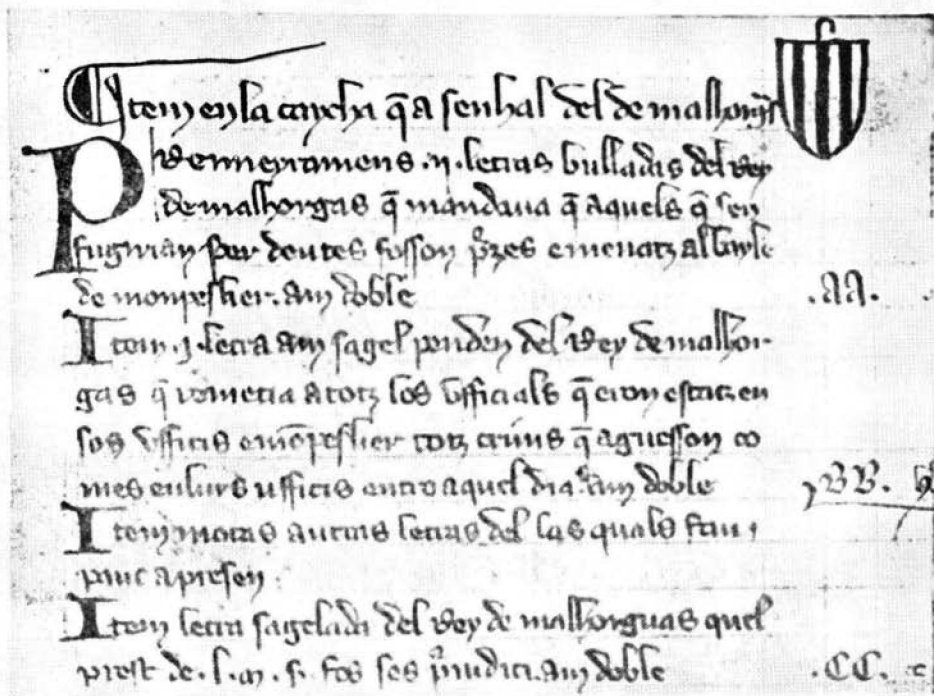 Item en la caycha q̄ a senhal del de malhorgꝭ
Premieyramens .ii. letras bulladas del rey
de malhorgas q̄ mandaua q̄ aquels q̄ sen
fugirian per deutes fosson pꝛes e menatz al bayle
de monpeslier. am doble .AA.
Item .i. letra am sagel penden del Rey de malhor-
gas q̄ remetia a totz los vfficials q̄ eron estatz en
sos vfficis e mōpeslier totz crims q̄ aguesson co
mes en lurs ufficis entro aquel dia. am doble .BB.
Item motas autras letras del las quals fan
pauc a presen.
Item letra sagelada del Rey de malhorguas quel
prest de .l. m. s. fos ses piudici. am doble .CC.